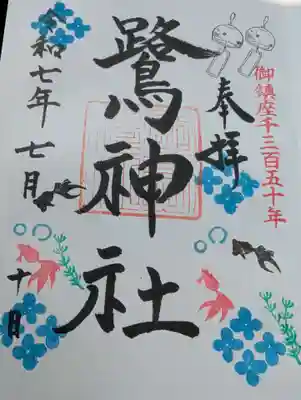 御鎮座千三百五十年
奉拝
鷺神社
令和七年七月
十日